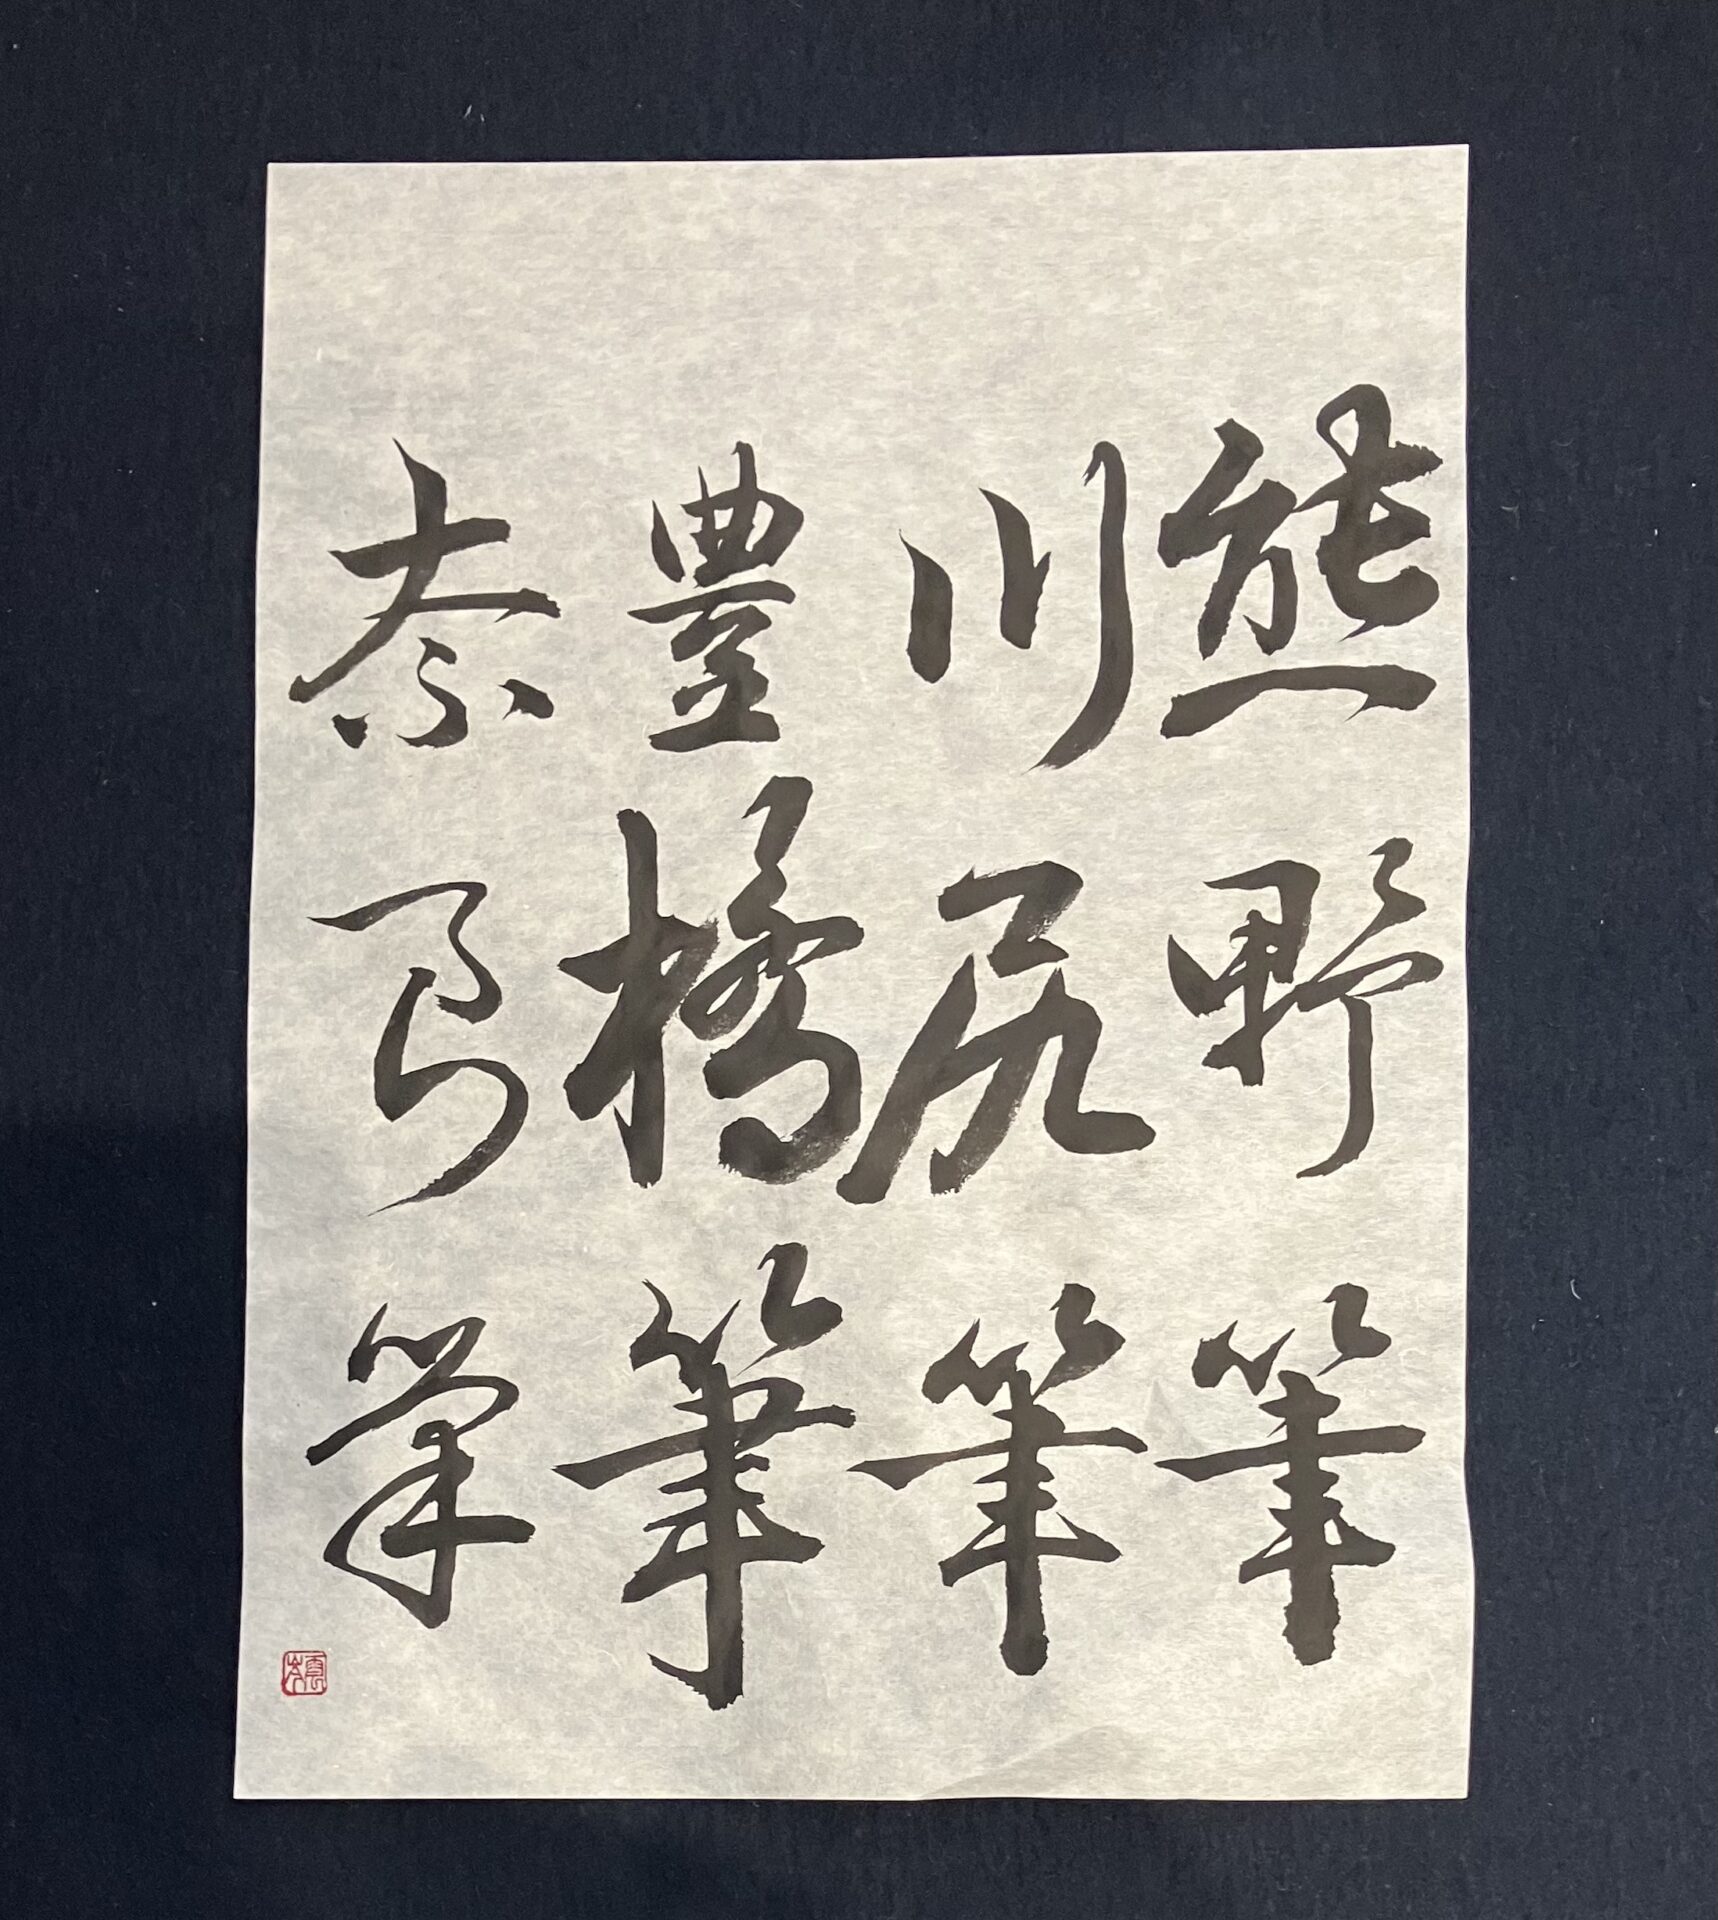 熊野筆
川尻筆
豊橋筆
奈良筆